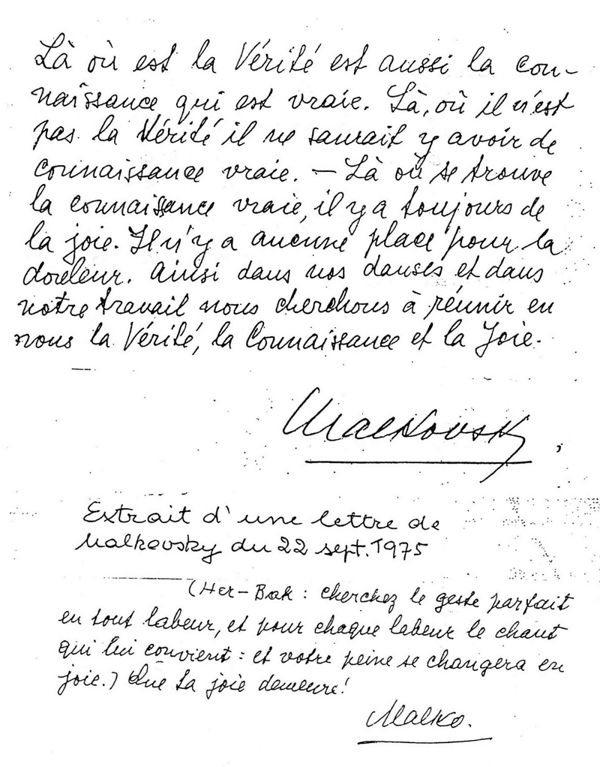 Là où est la Vérité est aussi la con-
naissance qui est vraie. Là, où il n'est
pas la Vérité il ne saurait y avoir de
connaissance vraie. – Là où se trouve
la connaissance vraie, il y a toujours de
la joie. Il n'y a aucune place pour la
douleur. Ainsi dans nos danses et dans
notre travail nous cherchons à réunir en
nous la Vérité, la Connaissance et la Joie.
Malkovsky,
Extrait d'une lettre de
Malkovsky du 22 sept. 1975
(Her-Bak : cherchez le geste parfait
en tout labeur, et pour chaque labeur le chant
qui lui convient : et votre peine se changera en
joie.) Que ta joie demeure!
Malko.